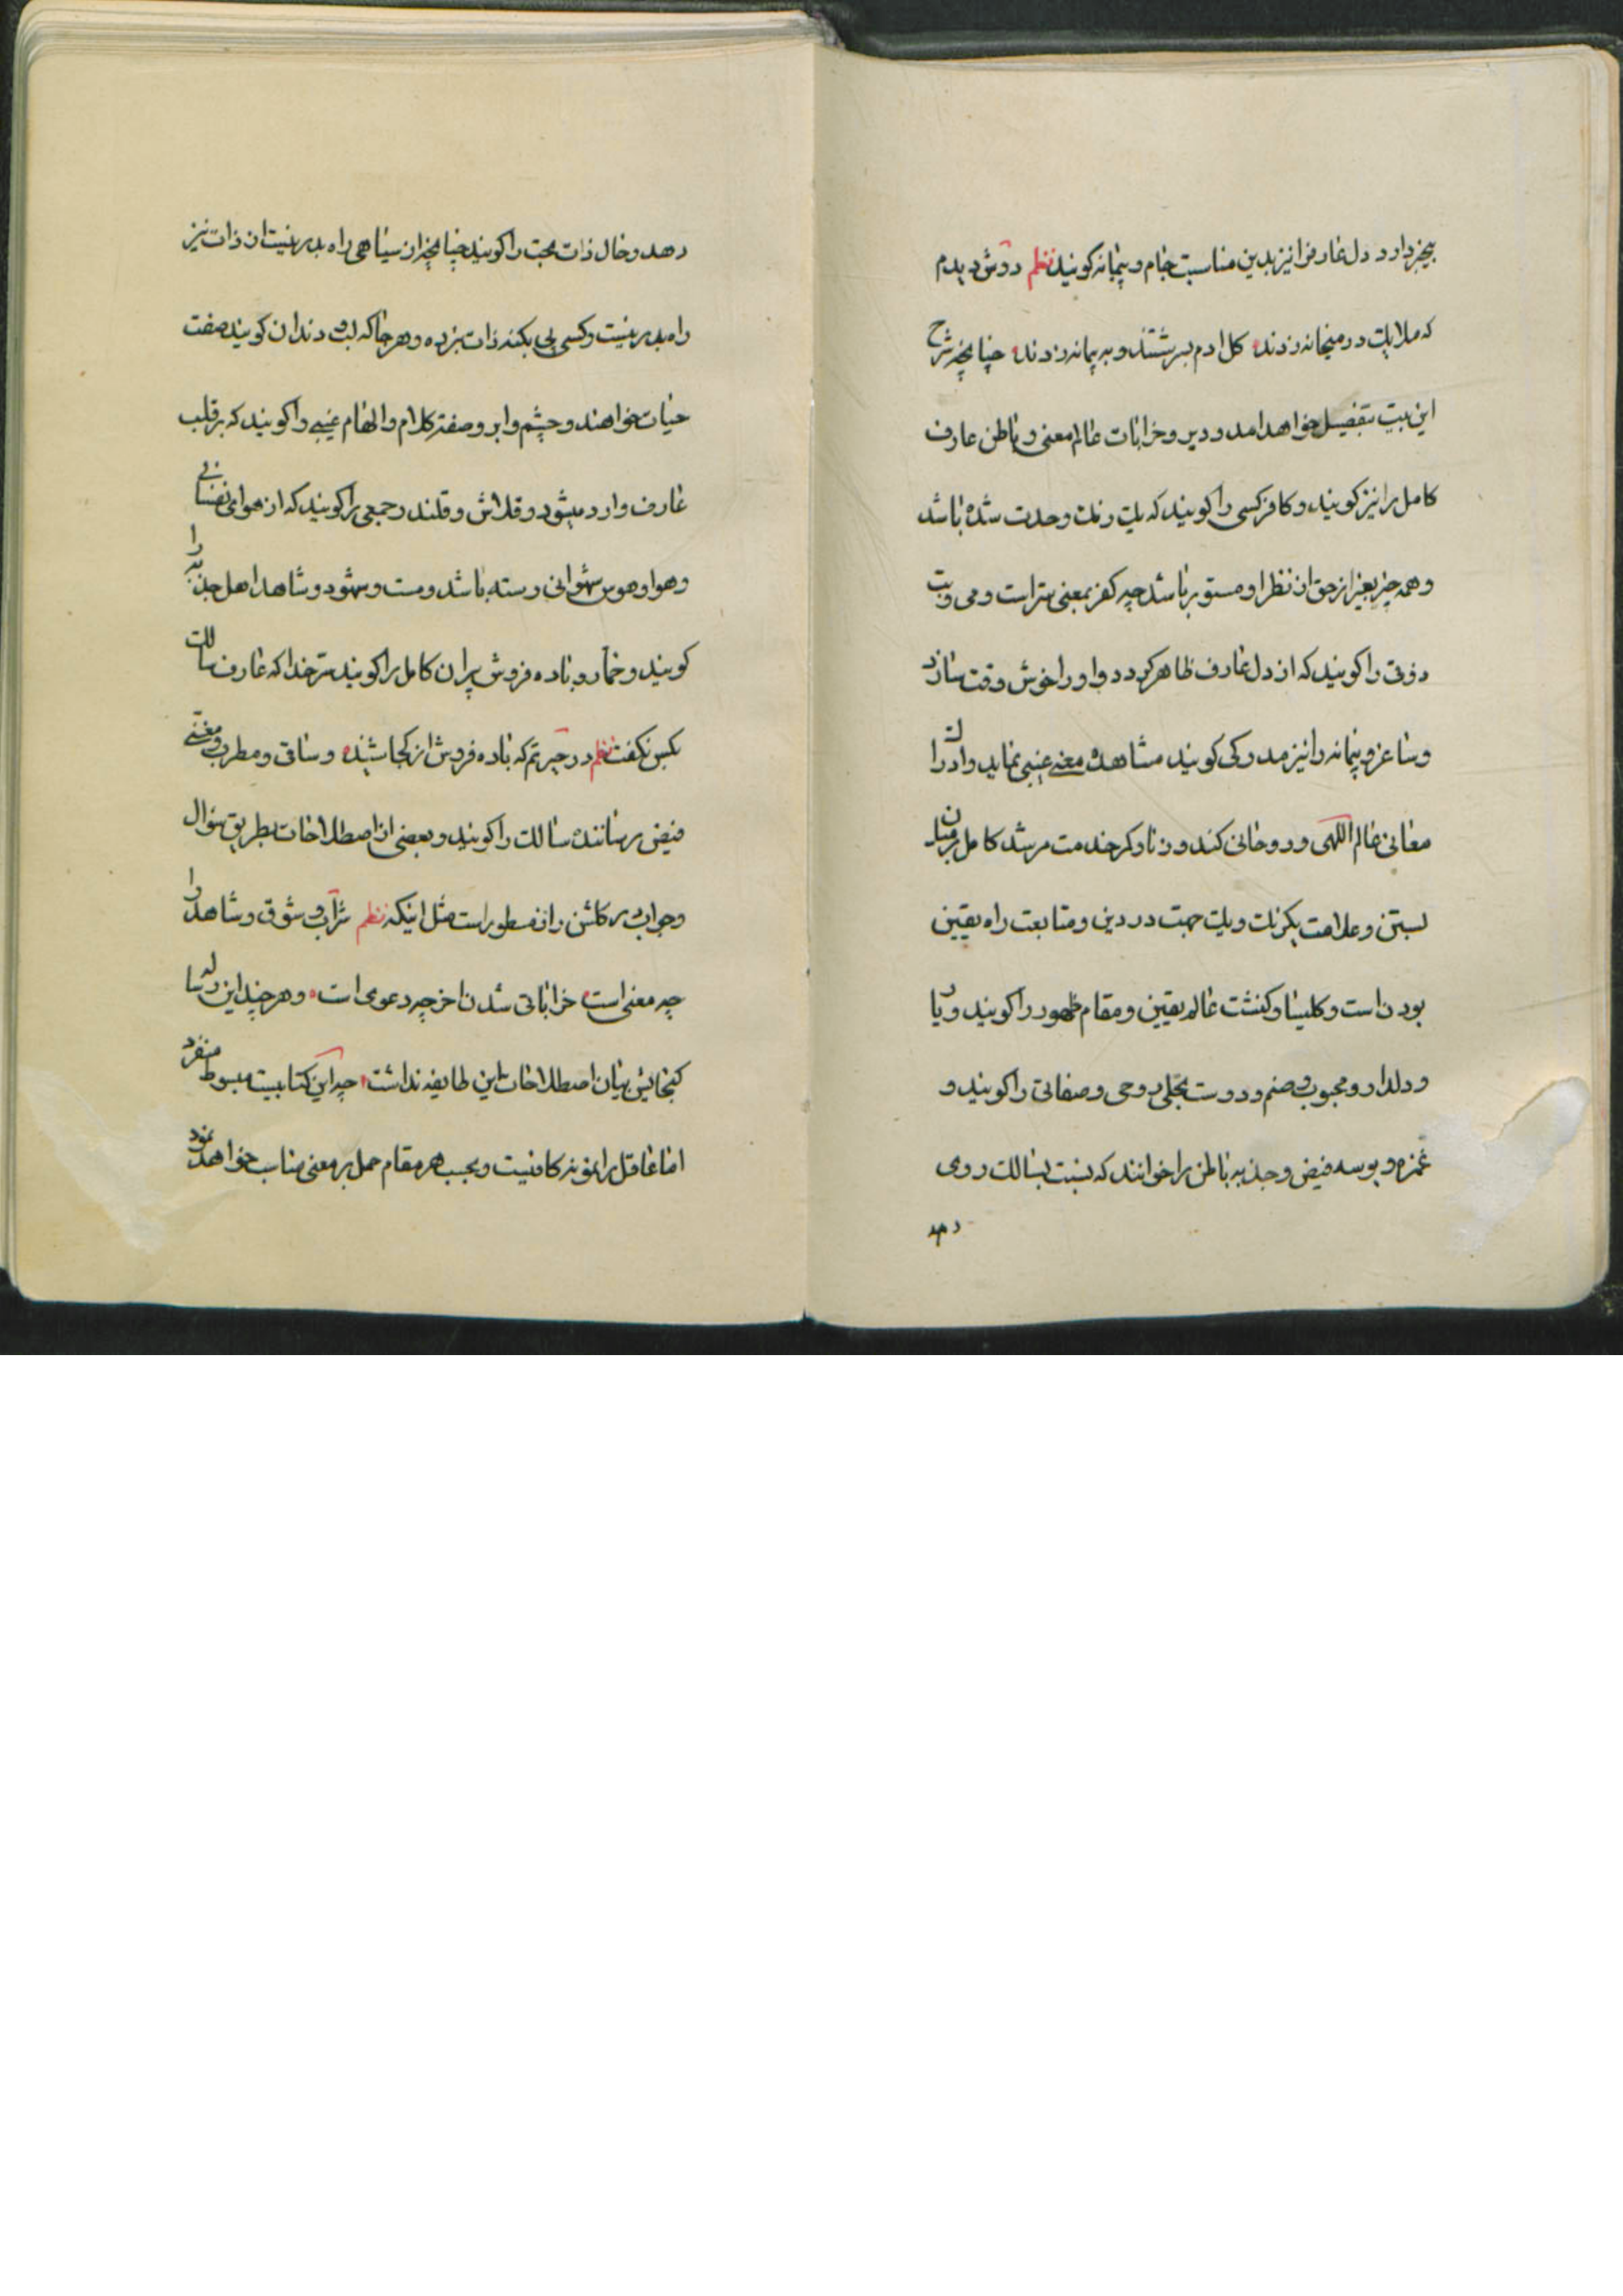 بیخبر دارد و دل عارف را نیز بدین مناسبت جام و پیمانه کویند نظم دوش دیدم
که ملایک در میخانه زدند کل ادم بسرشتند و به پیمانه زدند چنانچه شرح
این بیت بتفصیل خواهد امد و دیر و خرابات عالم معنی و باطن عارف
کامل را نیز کویند و کافر کسی را کویند که یک رنک وحدت شده باشد
و همه چیز بغیر از حق از نظر او مستور باشد چه کفر بمعنی ستر است و می و بت
ذوقی را کویند که از دل عارف ظاهر کردد و او را خوش وقت سازد
و ساغر و پیمانه را نیز مدرکی کویند مشاهده معنی غیبی نماید و ادراک
معانی عالم اللهی و روحانی کند و زنار کمر خدمت مرشد کامل بر میان
بستن و علامت یکرنک و یک جهت در دین و متابعت راه یقین
بودن است و کلیسا و کنشت عالم یقین و مقام ظهور را کویند و یار
و دلدار و محبوب و صنم و دوست تجلی روحی و صفاتی را کویند و
غمزه و بوسه فیض و جذبه باطن را خوانند که نسبت بسالک روی
دهد
دهد و خال ذات بحت را کویند چنانچه از سیاهی راه بدر نیست از ذات نیز
راه بدر نیست و کسی پی بکنه ذات نبرده و هر جا که لب و دندان کویند صفت
حیات خواهند و چشم و ابرو صفت کلام و الهام غیبی را کویند که بر قلب
عارف وارد میشود و قلاش و قلندر جمعی را کویند که از هوای نفسانی
و هوا و هوس شهوانی رسته باشد و مست و شهود و شاهد اهل جذبه را
کویند و خمار و باده فروش پیران کامل را کویند سر خدا که عارف سالک
بکس نکفت نظم در حیرتم که باده فروش از کجا شنید و ساقی و مطرب و مغنی
فیض رسانندهٔ سالک را کویند و بعضی از اصطلاحات بطریق سؤال
و جواب در کلشن راز مسطور است مثل اینکه نظم شراب و شوق و شاهد را
چه معنی است خراباتی شدن اخر چه دعوی است و هر چند این رساله
کنجایش بیان اصطلاحات این طایفه نداشت چه این کتابیست مبسوط منفرد
اما عاقل را نمونه کافیست و بحسب هر مقام حمل بر معنی مناسب خواهد نمود